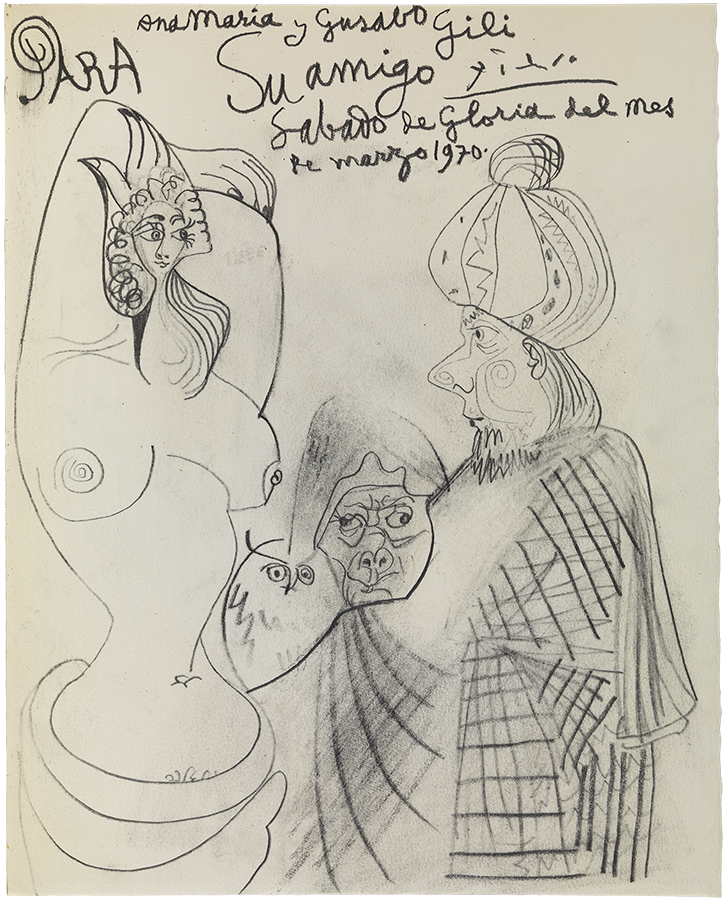 Para
Ana Maria y Gustabo Gili
Su amigo
Sabado de Gloria del mes
de marzo 1970.